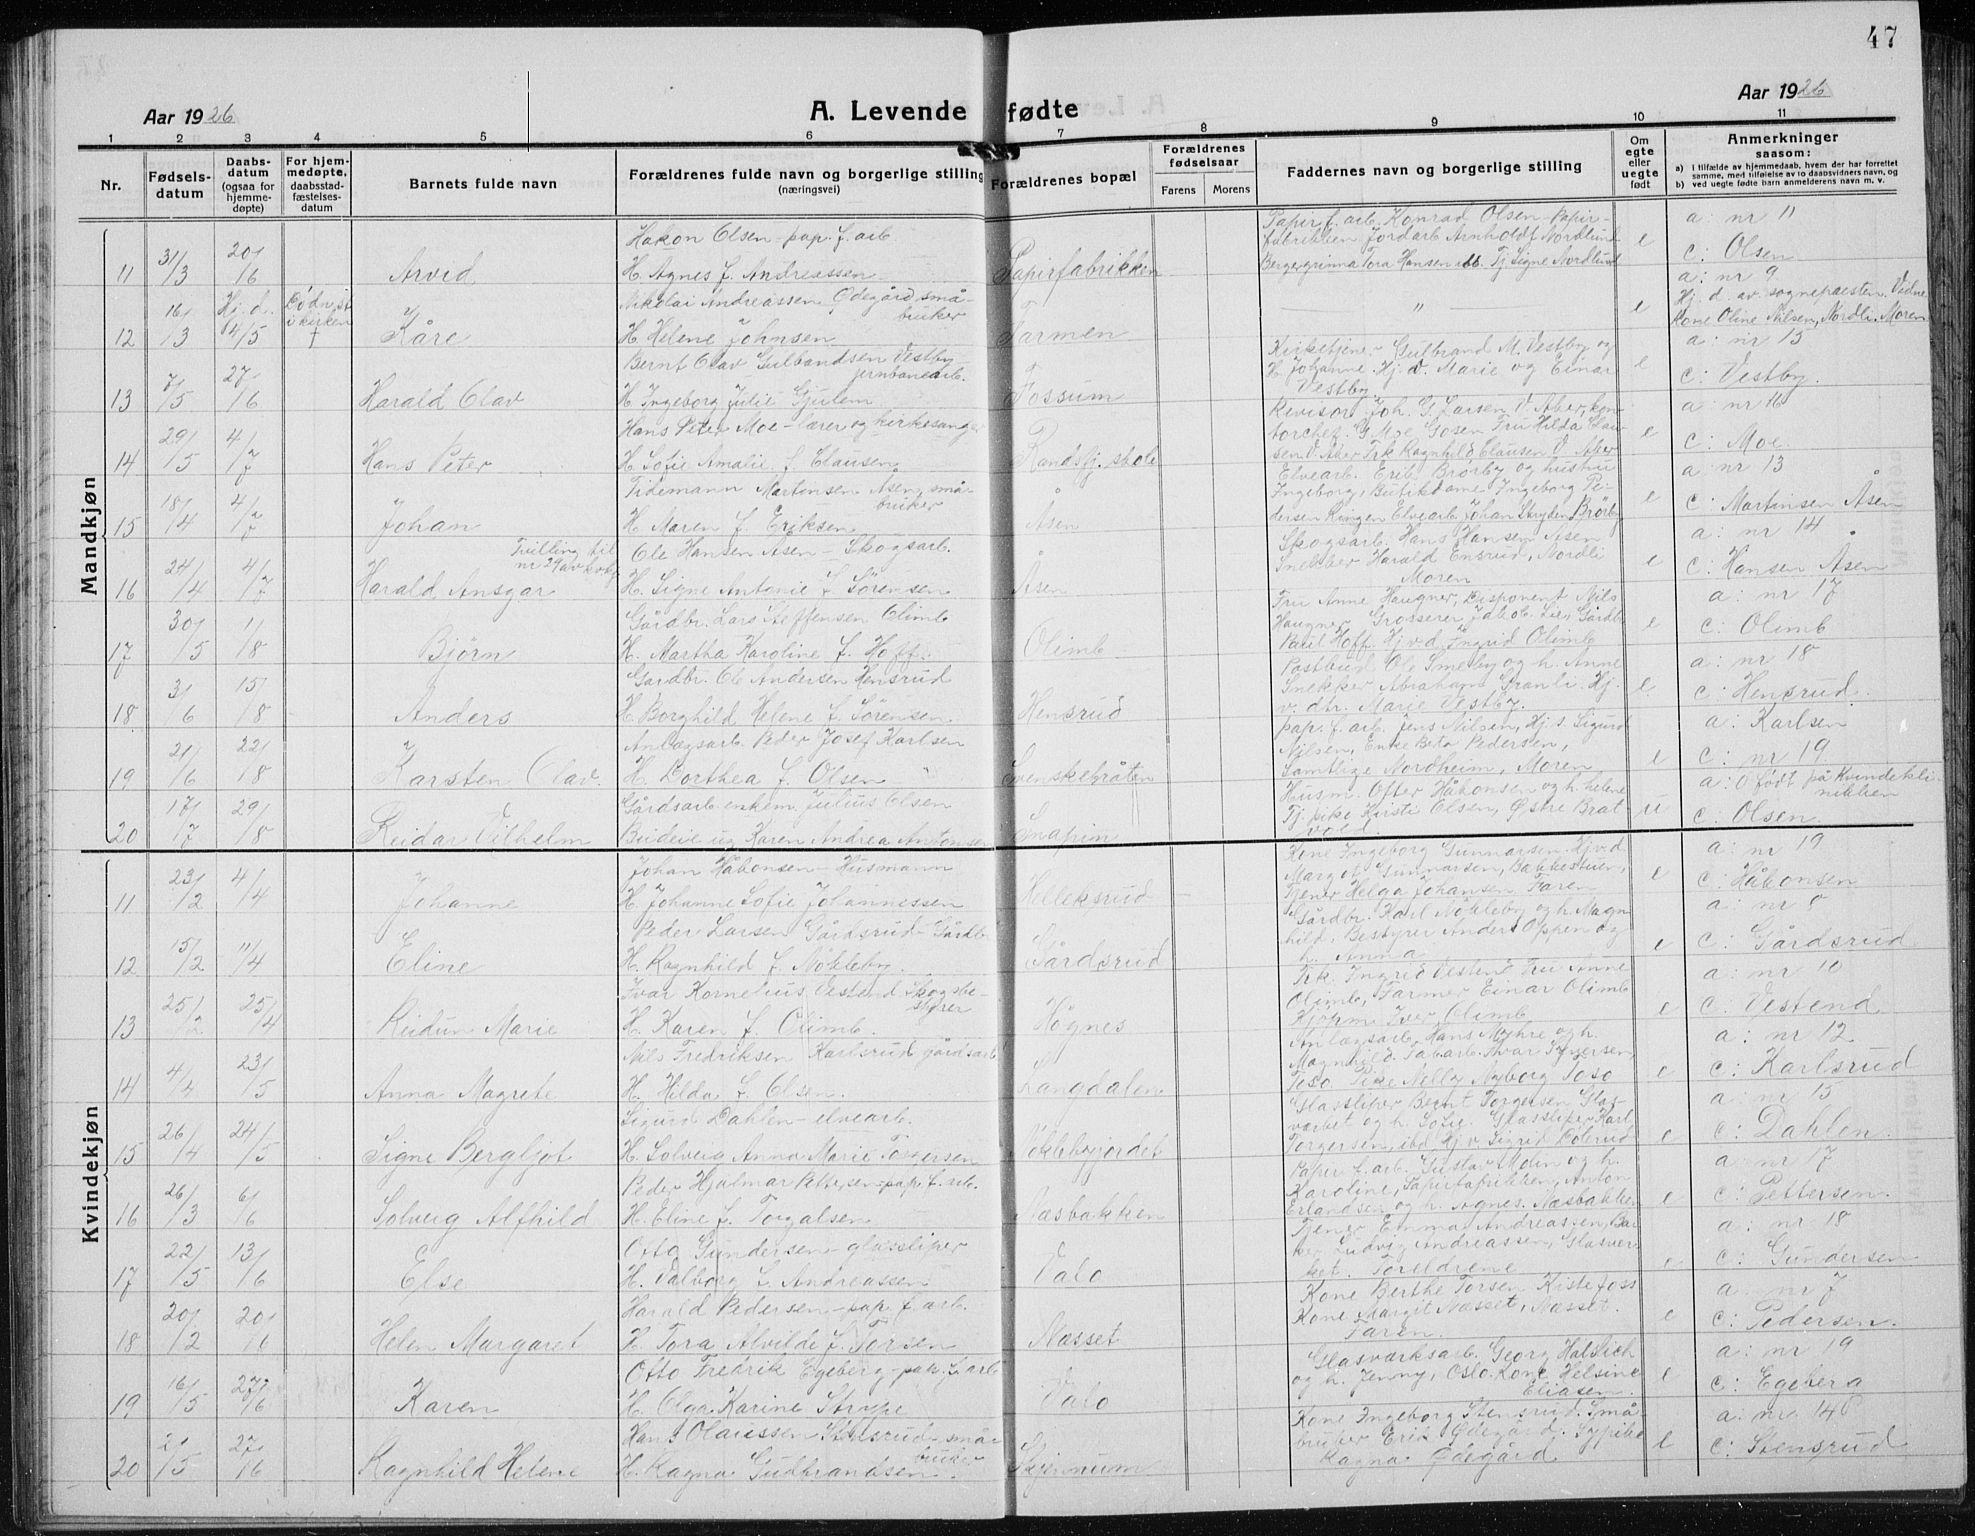 47
Aar 1926
A. Levende fødte
Aar 1926
1 2 3 4 5 6 7 8 9 10 11
Nr.
Fødsels-
datum
Daabs-
datum
(ogsaa for
hjemme-
døpte)
For hjem-
medøpte,
daabsstad-
fæstelses-
datum
Barnets fulde navn
Forældrenes fulde navn og borgerlige stilling
(næringsvei)
Forældrenes bopæl
Forældrenes
fødselsaar
Farens
Morens
Faddernes navn og borgerlige stilling
Om
egte
eller
uegte
født
Anmerkninger
saasom:
a) I tilfælde av hjemmedaab, hvem der har forrettet
samme, med tilføielse av to daabsvidners navn, og
b) ved uegte fødte barn anmelderens navn m. v.
Mandkjøn
Hakon Olsen - pap. f. arb.
Papir f. arb. Konrad Olsen - Papir-
fabrikken Jordarb Arnholdt Nordlund
a: nr 11
11 31/3 20/6 Arvid H. Agnes f. Andreassen Papirfabrikken Tora Hansen Tj. Signe Nordlund e c: Olsen
a: nr 9
Nikolai Andreassen Ödegård små-
bruker
Hj. d. av sognepresten. Vidne
12 16/3 Hj. d. 4/5 Dödn. st i kirken † Kåre H. Helene Johnsen Tormen " e Kone Oline Nilsen, Nordli. Moren
a: nr 15
Bernt Olav Gulbrandsen Vestby
jernbanearb.
Kirketjener Gulbrand M. Vestby og
H. Johanne. Hj. d. Marie og Einar
13 7/5 27/6 Harald Olav H. Ingeborg Julie Gjulem Fossum Vestby e c: Vestby
a: nr 16
Hans Peter Moe - lærer og kirkesanger
Revisor Joh. G. Larsen V. Aker, kon-
torchef G. Moe Gosen Fru Hilda Clau-
14 29/5 4/7 Hans Peter H. Sofie Amalie f. Clausen Randsfj. skole sen V. Aker Frk Ragnhild Clausen V. Aker e c: Moe
a: nr 13
Tidemann Martinsen Åsen, små-
bruker
Elvearb. Erik Brörby og hustru
Ingeborg, Butikdame Ingeborg Pe-
15 18/4 4/7 Johan H. Maren f. Eriksen Åsen dersen Ringen Elvearb Johan Stryken Brörby e c: Martinsen Åsen
a: nr 14
Tvilling til
nr 29 av kvkj.
Ole Hansen Åsen - Skogsarb.
Skogsarb. Hans Hansen Åsen
Snekker Harald Ensrud, Nordli
16 24/4 4/7 Harald Ansgar H. Signe Antonie f Sörensen Åsen Moren e c: Hansen Åsen
a: nr 17
Gårdbr. Lars Steffensen Olimb
Fru Anne Haugner, Disponent Nils
Haugner Grosserer Jakob Lie, Gårdb
17 30/5 1/8 Björn H. Martha Karoline f. Hoff. Olimb Paul Hoff. Hj. v. d. Ingrid Olimb e c: Olimb
a: nr 18
Gårdbr. Ole Andersen Hensrud
Postbud Ole Smeby og h. Anne
Snekker Abraham Granli. Hj.
18 3/6 15/8 Anders H. Borghild Helene f. Sörensen Hensrud v. dtr. Marie Vestby. e c: Hensrud
a: Karlsen
Anlægsarb. Peder Josef Karlsen
pap. f. arb. Jens Nilsen, Hj. s. Sigurd
Nilsen, Enke Beta Pedersen,
19 21/6 22/8 Karsten Olav H. Dorthea f. Olsen Svenskebråten Samtlige Nordheim, Moren e c: nr 19
a: O født på Kvindekli-
nikken
Gårdsarb. enkem. Julius Olsen
Husm. Ofter Håkonsen og h. helene
Tj. pike Kirsti Olsen, Østre Brat-
20 17/7 29/8 Reidar Vilhelm Budeie ug. Karen Andrea Antonsen Snapim vold u c: Olsen
Kvindekjøn
a: nr 19
Johan Håkonsen - Husmann
Kone Ingeborg Gunnarsen. Hj.v.d
Margot Gunnarsen, Bakkestuen,
11 23/2 4/4 Johanne H. Johanne Sofie Johannessen Helleksrud Tjener Helga Johansen Faren e c: Håkonsen
a: nr
Peder Larsen Gårdsrud - Gårdb
Gårdbr. Karl Nökleby og h. Magn-
hild, Bestyrer Anders Oppen og
12 15/2 11/4 Eline H. Ragnhild f. Nökleby Gårdsrud h. Anna e c: Gårdsrud
a: nr 10
Ivar Kornelius Vestend Skogsbe-
styrer
Frk. Ingrid Vestend Fru Anne
Olimb, Farmer Einar Olimb
13 25/2 25/4 Reidun Marie H. Karen f. Olimb. Högnes Iver Olimb e c. Vestend
a: nr 12
Nils Fredriksen Karlsrud gårdsarb
Anlægsarb. Hans Myhre og h.
Magnhild Ivar
14 4/4 23/5 Anna Magrete H. Hilda f. Olsen. Langdalen Toso. Pike Nelly Nyborg Toso e c: Karlsrud
a: nr 15
Sigurd Dahlen - elvearb.
Glassliper Bernt Torgersen Glas-
værket og h. Sofie. Glassliper Karl
15 26/4 24/5 Signe Bergljot H. Solveig Anna Marie Torgersen Nöklebyjordet Torgersen, ibd Hj. v Sigrid e c: Dahlen
a: nr 17
Peder Hjalmar Pettersen - pap. f. arb.
Papir f. arb. Gustav Moen og h.
Karoline, Papirfabrikken, Anton
16 26/3 6/6 Solveig Alfhild H. Eline f. Torgalsen Næsbakken Erlandsen og h. Agnes. Næsbakken e c: Pettersen.
a: nr 18
Otto Gundersen - glassliper
Tjener Emma Andreassen, Ba-
ker Ludvig Andreassen, Glasver-
17 22/5 13/6 Else H. Valborg f. Andreassen Valo ket. Foreldrene e c: Gundersen
a: nr 7
Harald Pedersen - pap. f. arb.
Kone Berthe Torsen. Kistefoss
Kone Margit Næsset, Næsset.
18 20/2 20/6 Helen Margaret H. Tora Alvilde f. Torsen Næsset Faren. e c: Pedersen.
a: nr 19
Otto Fredrik Egeberg pap. f. arb
Glasværksarb. Georg
og h. Jenny, Oslo. Kone Helsine
19 16/5 27/6 Karen H. Olga Karine Strype Valo Eliasen e c: Egeberg
a: nr. 14
Hans Olaussen Stensrud - små-
bruker
Kone Ingeborg Stensrud. Små-
bruker Erik Ødegård.
20 21/5 27/6 Ragnhild Helene H. Ragna Gudbrandsen Skjennum Ragna Ødegård e c: Stensrud